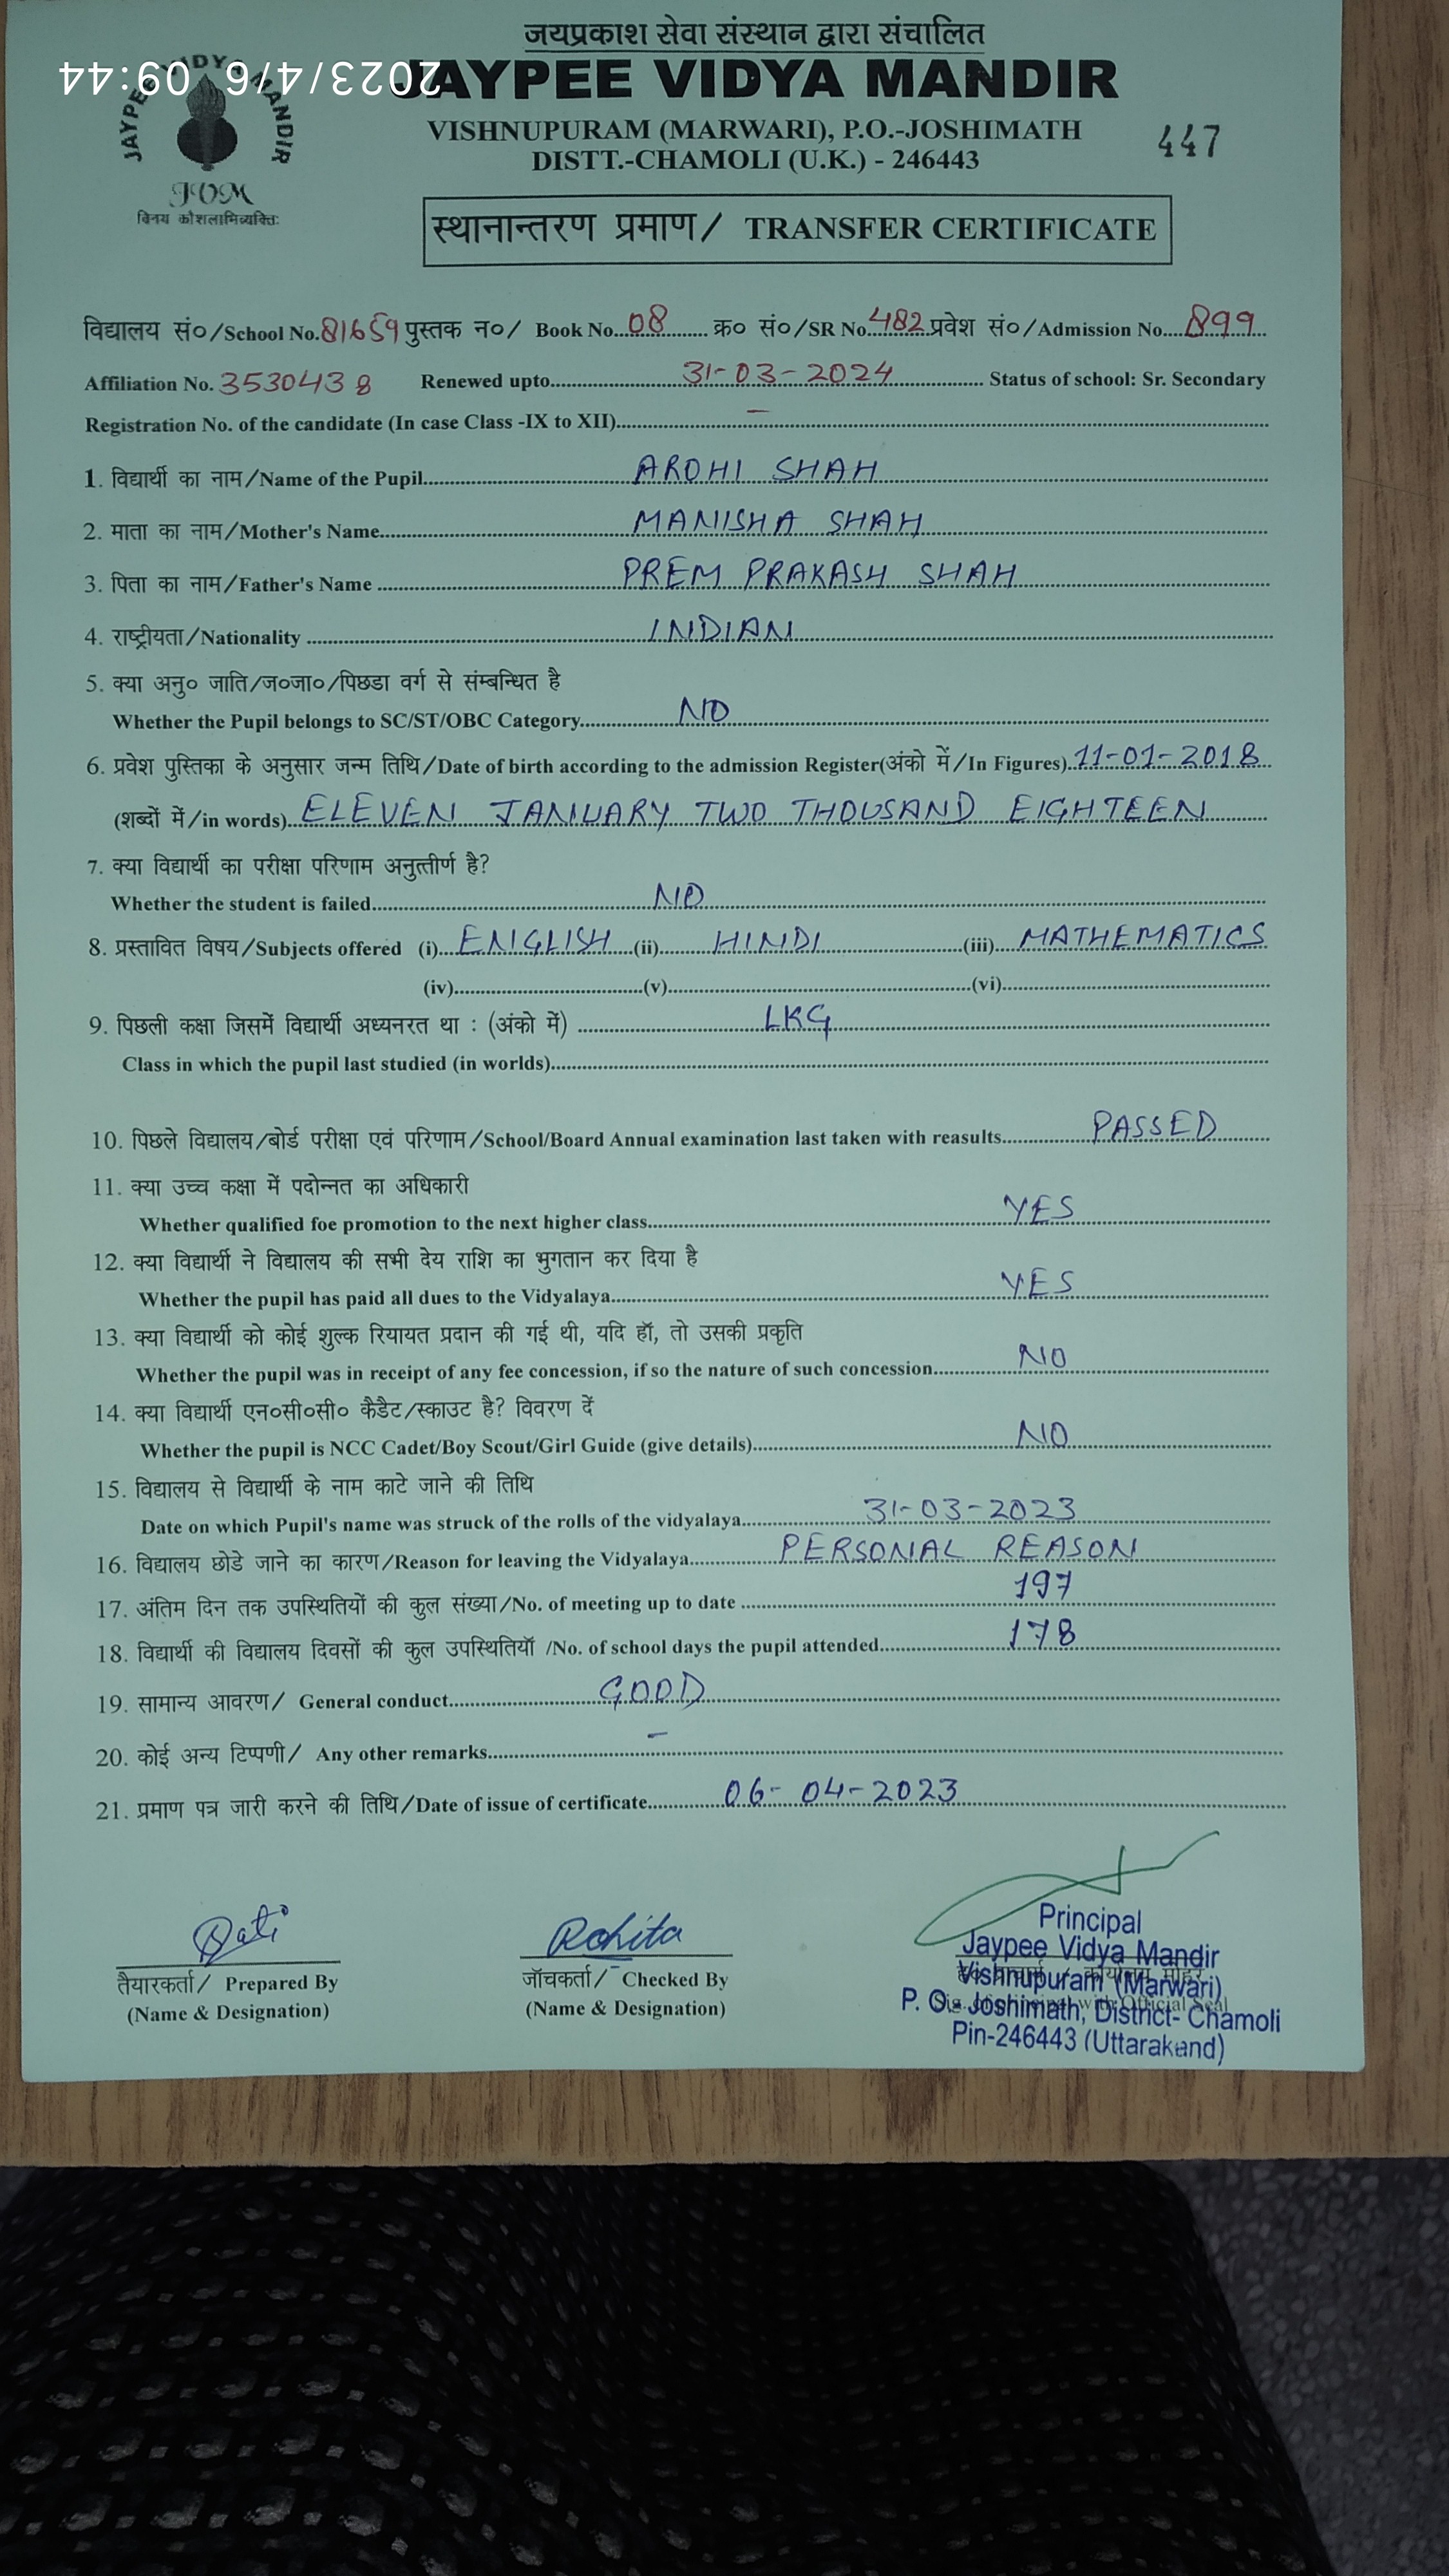 जयप्रकाश सेवा संस्थान द्वारा संचालित
JAYPEE VIDYA MANDIR
2023/4/6 09:44
JAYPEE VIDYA MANDIR
JVM
विनय कौशलाभिव्यक्तिः
VISHNUPURAM (MARWARI), P.O.-JOSHIMATH
DISTT.-CHAMOLI (U.K.) - 246443
447
स्थानान्तरण प्रमाण/ TRANSFER CERTIFICATE
विद्यालय सं०/School No. 81659 पुस्तक न०/ Book No. 08 क्र० सं०/SR No. 482 प्रवेश सं०/Admission No. 899
Affiliation No. 3530438 Renewed upto 31-03-2024 Status of school: Sr. Secondary
Registration No. of the candidate (In case Class -IX to XII) -
1. विद्यार्थी का नाम/Name of the Pupil AROHI SHAH
2. माता का नाम/Mother's Name MANISHA SHAH
3. पिता का नाम/Father's Name PREM PRAKASH SHAH
4. राष्ट्रीयता/Nationality INDIAN
5. क्या अनु० जाति/ज०जा०/पिछडा वर्ग से संम्बन्धित है
Whether the Pupil belongs to SC/ST/OBC Category NO
6. प्रवेश पुस्तिका के अनुसार जन्म तिथि/Date of birth according to the admission Register(अंको में/In Figures) 11-01-2018
(शब्दों में/in words) ELEVEN JANUARY TWO THOUSAND EIGHTEEN
7. क्या विद्यार्थी का परीक्षा परिणाम अनुत्तीर्ण है?
Whether the student is failed NO
8. प्रस्तावित विषय/Subjects offered (i) ENGLISH (ii) HINDI (iii) MATHEMATICS
(iv) (v) (vi)
9. पिछली कक्षा जिसमें विद्यार्थी अध्यनरत था : (अंको में) LKG
Class in which the pupil last studied (in worlds)
10. पिछले विद्यालय/बोर्ड परीक्षा एवं परिणाम/School/Board Annual examination last taken with reasults PASSED
11. क्या उच्च कक्षा में पदोन्नत का अधिकारी
Whether qualified foe promotion to the next higher class YES
12. क्या विद्यार्थी ने विद्यालय की सभी देय राशि का भुगतान कर दिया है
Whether the pupil has paid all dues to the Vidyalaya YES
13. क्या विद्यार्थी को कोई शुल्क रियायत प्रदान की गई थी, यदि हॉ, तो उसकी प्रकृति
Whether the pupil was in receipt of any fee concession, if so the nature of such concession NO
14. क्या विद्यार्थी एन०सी०सी० कैडैट/स्काउट है? विवरण दें
Whether the pupil is NCC Cadet/Boy Scout/Girl Guide (give details) NO
15. विद्यालय से विद्यार्थी के नाम काटे जाने की तिथि
Date on which Pupil's name was struck of the rolls of the vidyalaya 31-03-2023
16. विद्यालय छोडे जाने का कारण/Reason for leaving the Vidyalaya PERSONAL REASON
17. अंतिम दिन तक उपस्थितियों की कुल संख्या/No. of meeting up to date 197
18. विद्यार्थी की विद्यालय दिवसों की कुल उपस्थितियॉ /No. of school days the pupil attended 178
19. सामान्य आवरण/ General conduct GOOD
20. कोई अन्य टिप्पणी/ Any other remarks -
21. प्रमाण पत्र जारी करने की तिथि/Date of issue of certificate 06-04-2023
Rohita
तैयारकर्ता/ Prepared By
(Name & Designation)
जॉचकर्ता/ Checked By
(Name & Designation)
Principal
Jaypee Vidya Mandir
Vishnupuram (Marwari)
P. O.- Joshimath, District- Chamoli
Pin-246443 (Uttarakand)